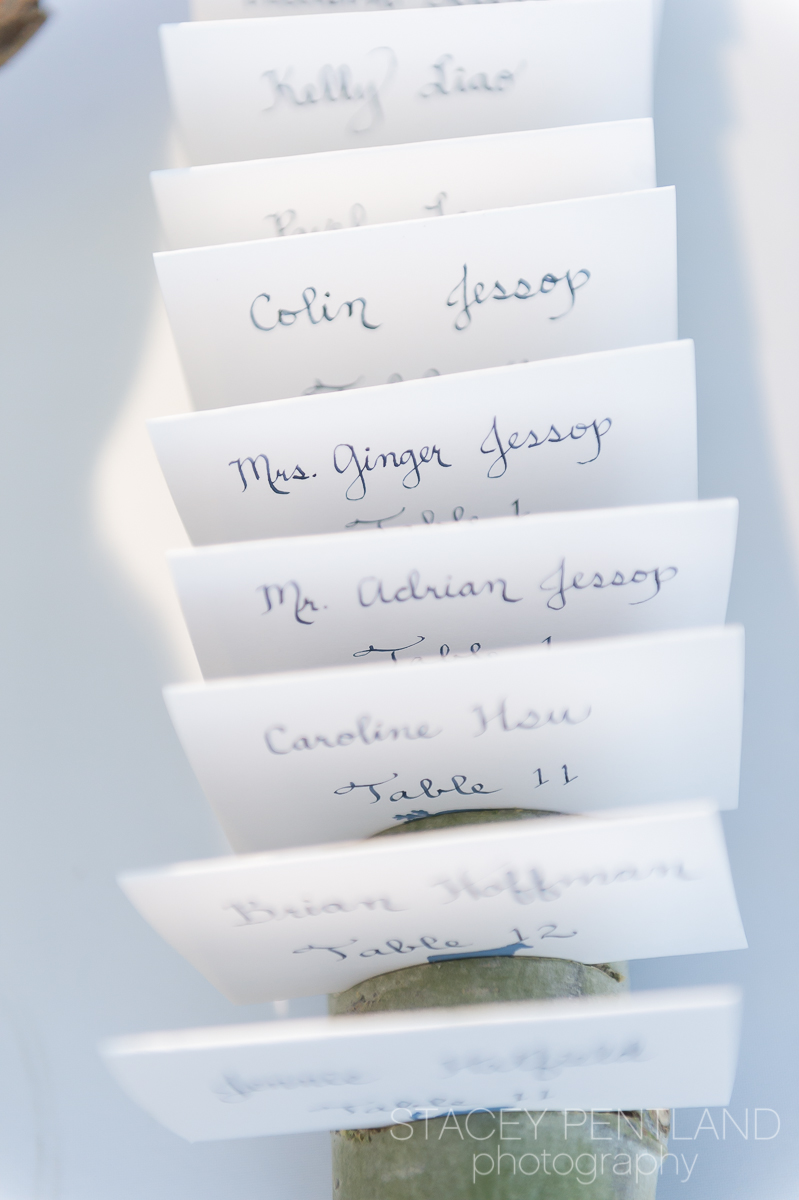 Kelly Liao
Colin Jessop
Mrs. Ginger Jessop
Table 1
Mr. Adrian Jessop
Table 1
Caroline Hsu
Table 11
Brian Hoffman
Table 12
Table 11
STACEY PENTLAND
photography